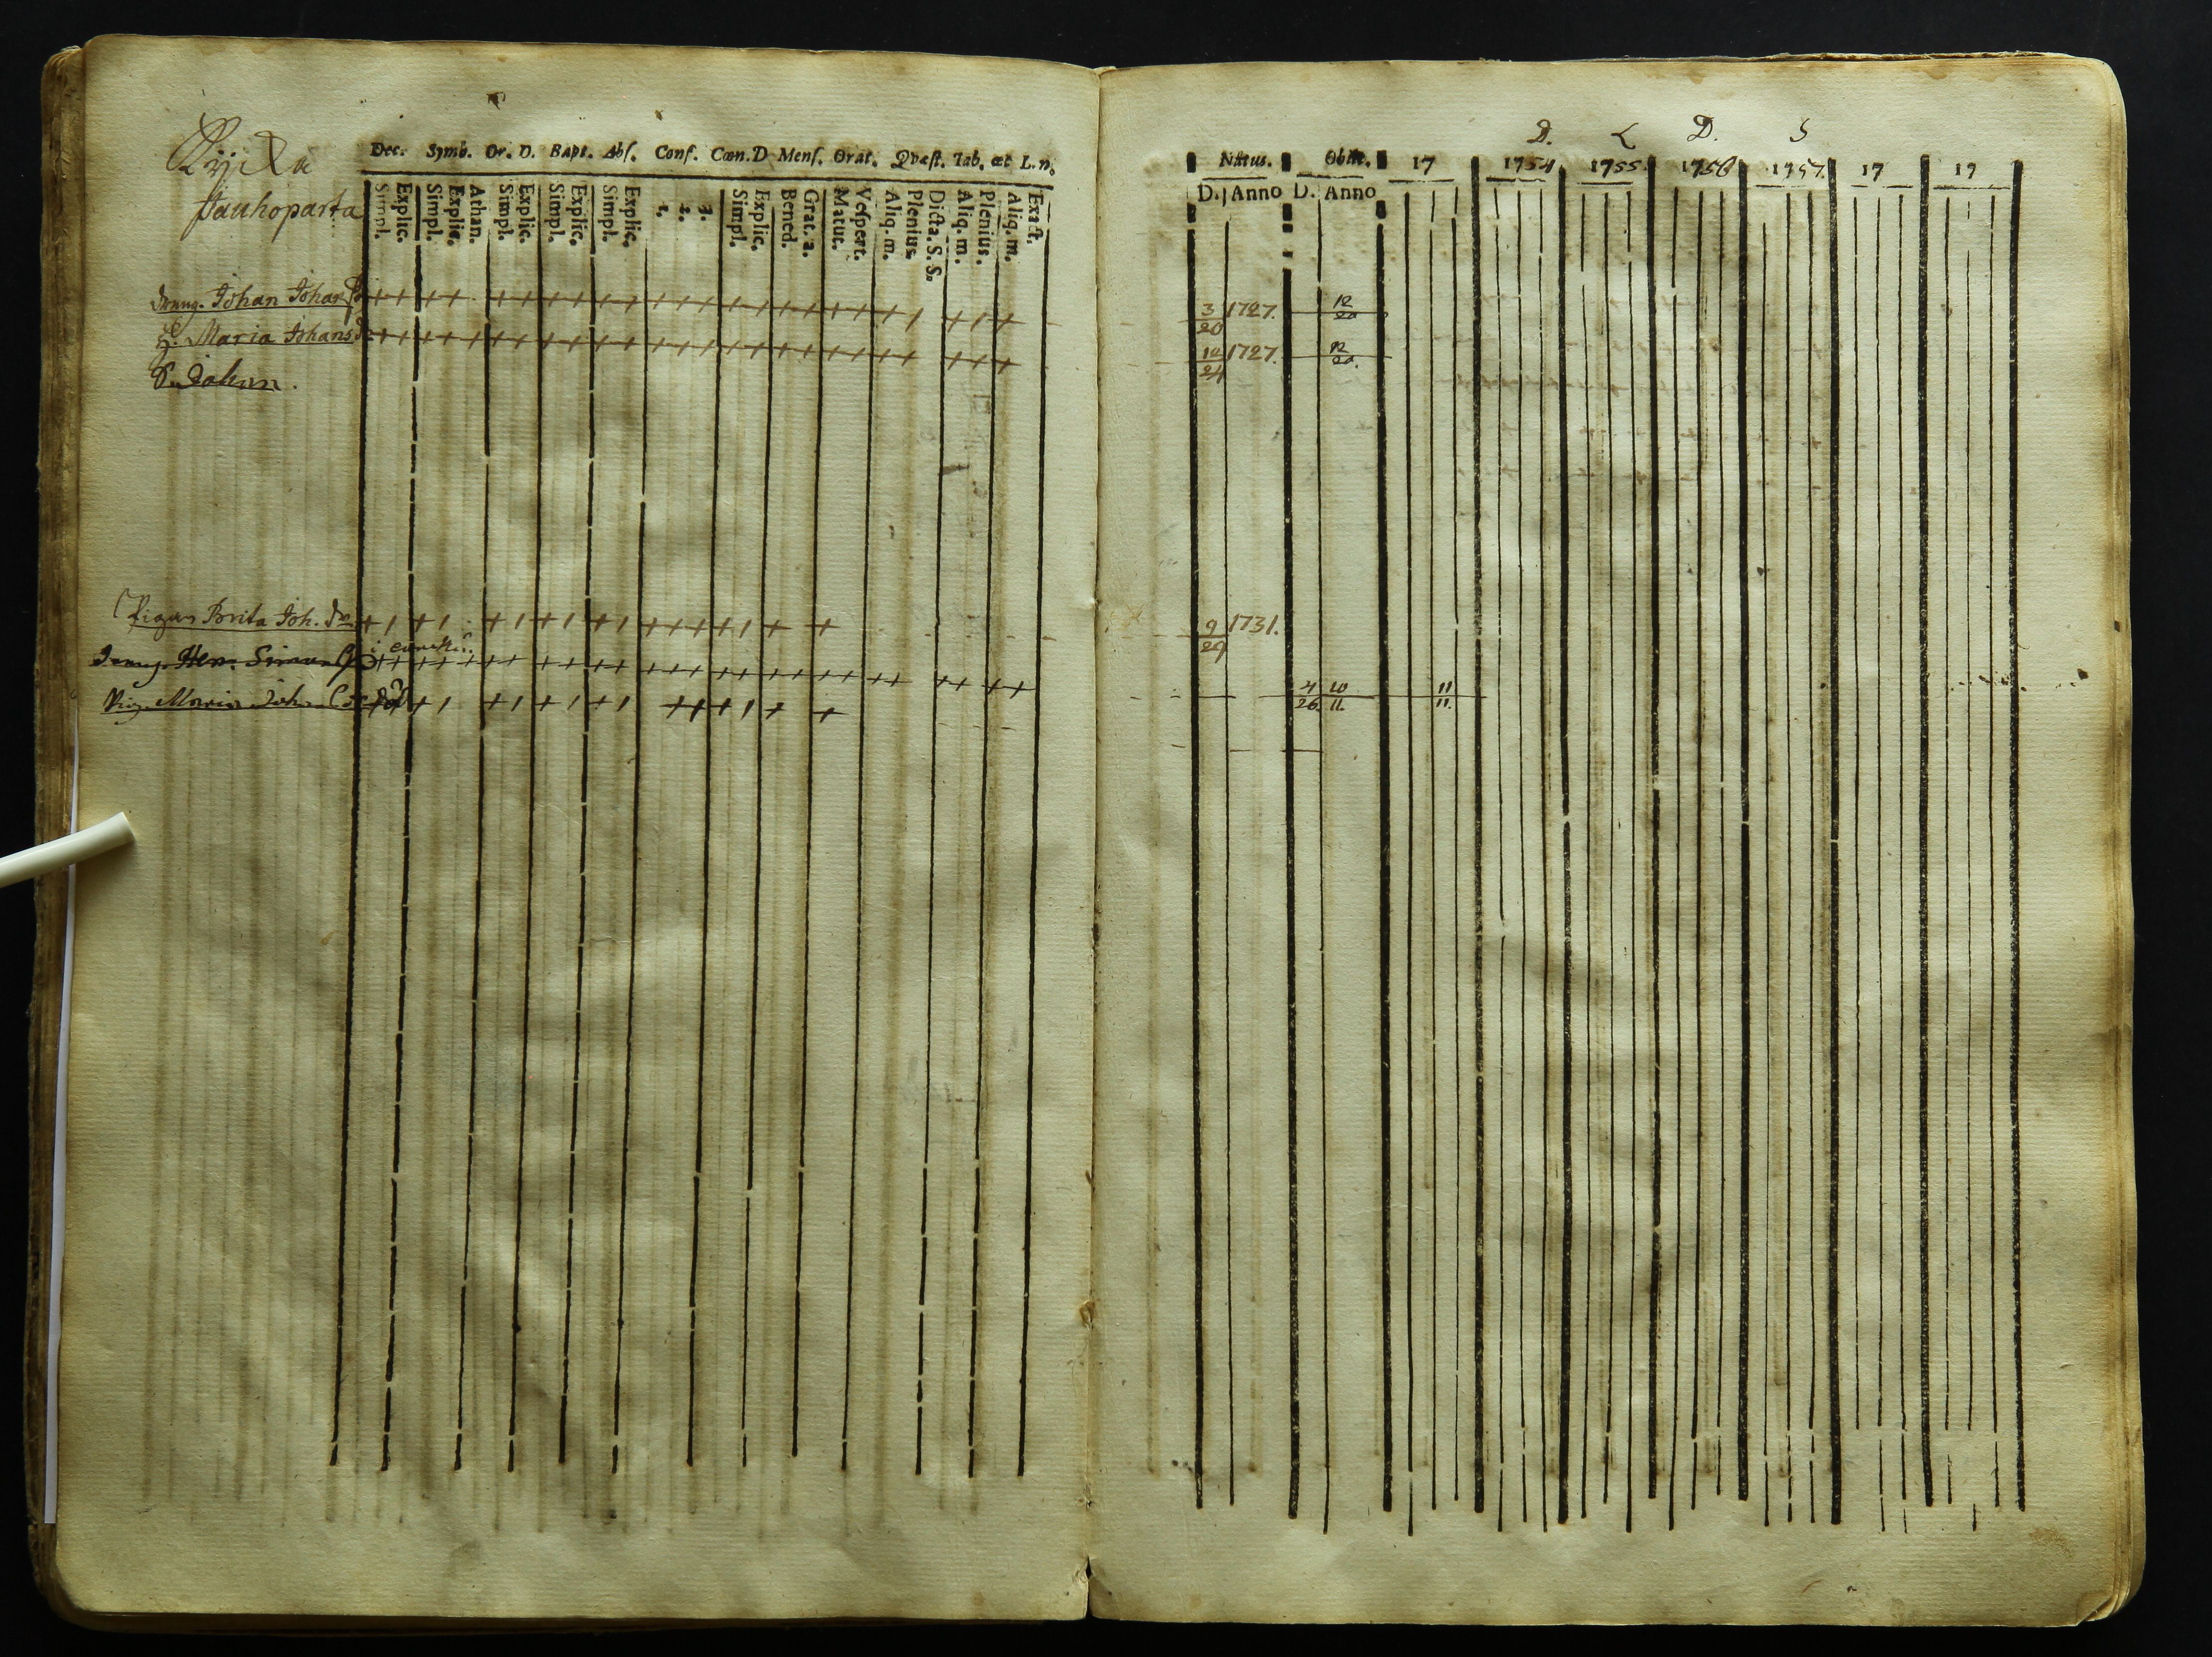 Dec. Symb. Or. D. Bapt. Abs. Conf. Cœn. D Mens. Orat. Qvæst. Tab. œt L. n.
Simpl. Explic. Simpl. Explic. Athan. Simpl. Explic. Simpl. Explic. Simpl. Explic. 1. 2. 3. Simpl. Explic. Bened. Grat. a. Matut. Vespert. Aliq. m. Plenius. Dicta. S. S. Aliq. m. Plenius. Aliq. m. Exact.
Pauhoparta
Johan Johan
H. Maria Johans
S. Johan.
Pigan Brita Joh. dr
Hen. Simons
Pig. Maria Joh.
D. L D. S
Natus. Obiit. 17 1754 1755 1756 1757 17 17
D. Anno D. Anno
3/20 1727. 12/20
12/24 1727. 12/20.
9/29 1731.
4/26. 10/11. 11/11.